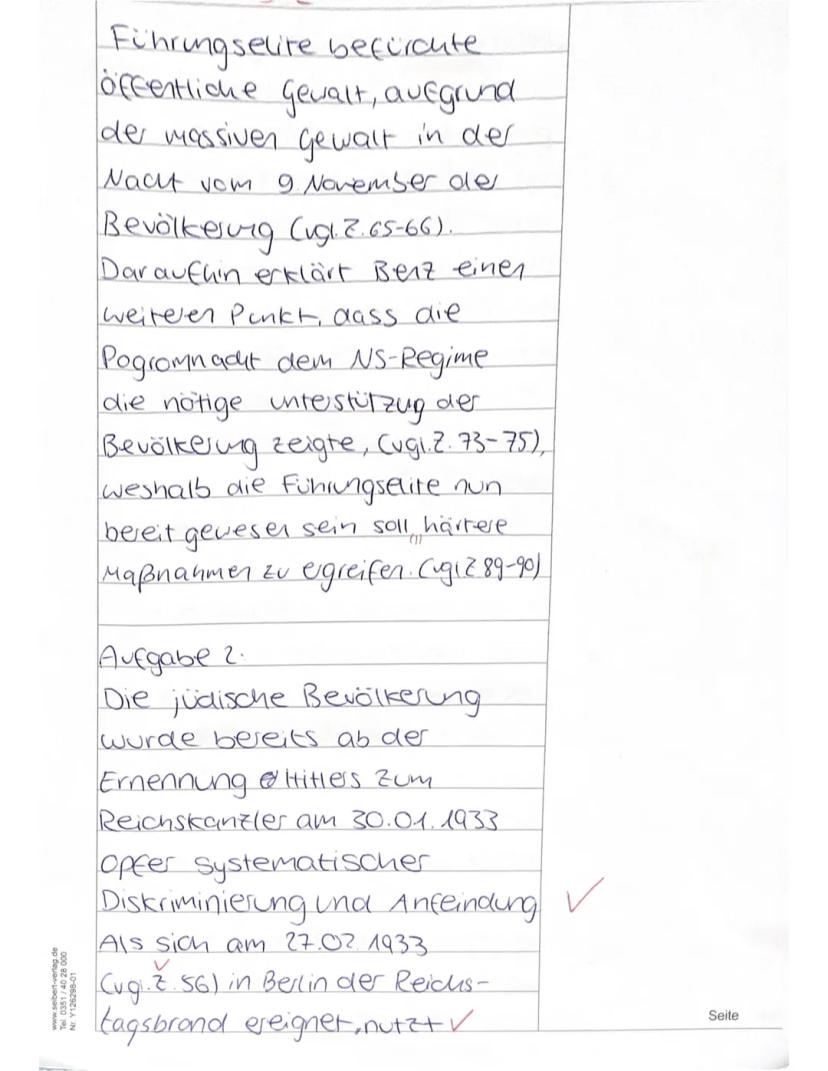 Führungselite befürchte
öffentliche Gewalt, aufgrund
der massiven Gewalt in der
Nacht vom 9. November der
Bevölkerung (vgl. Z. 65-66).
Daraufhin erklärt Benz einen
weiteren Punkt, dass die
Pogromnacht dem NS-Regime
die nötige unterstützug der
Bevölkerung zeigte, (vgl. Z. 73-75),
weshalb die Führungselite nun
bereit gewesen sein soll, härtere
Maßnahmen zu ergreifen. (vgl Z 89-90)
Aufgabe 2.
Die jüdische Bevölkerung
wurde bereits ab der
Ernennung Hitlers zum
Reichskanzler am 30.01.1933
opfer systematischer
Diskriminierung und Anfeindung
Als sich am 27.02.1933
(vgl. Z. 56) in Berlin der Reichs-
tagsbrand ereignet, nutzt
www.seibert-verlag.de
Tel. 0351 / 40 28 000
Nr. Y126298-01
Seite